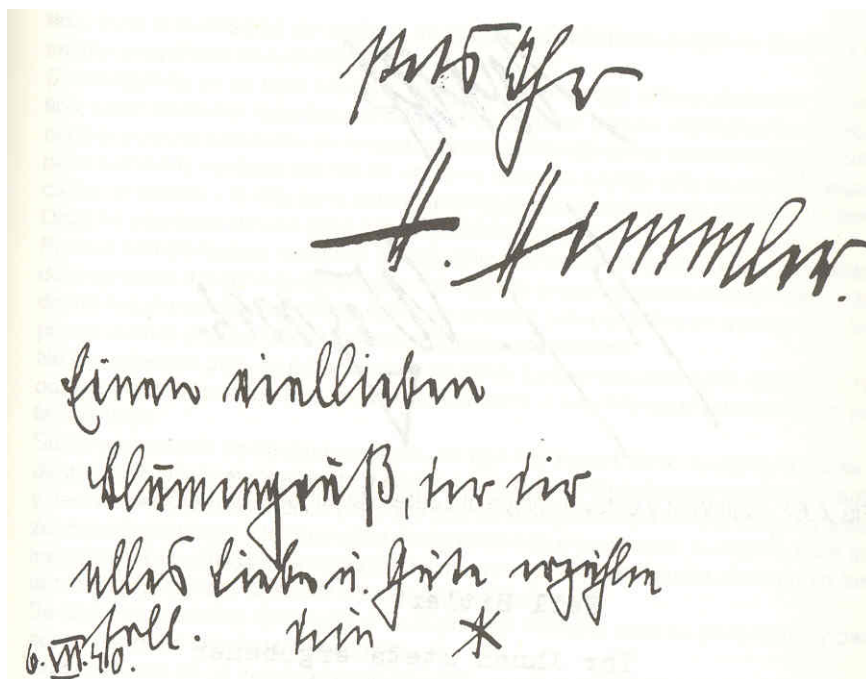 stets Ihr
H. Himmler.
Einen viellieben
Blumengruß, der dir
alles Liebe u. Gute erzählen
soll. dein *
6.VII.40.